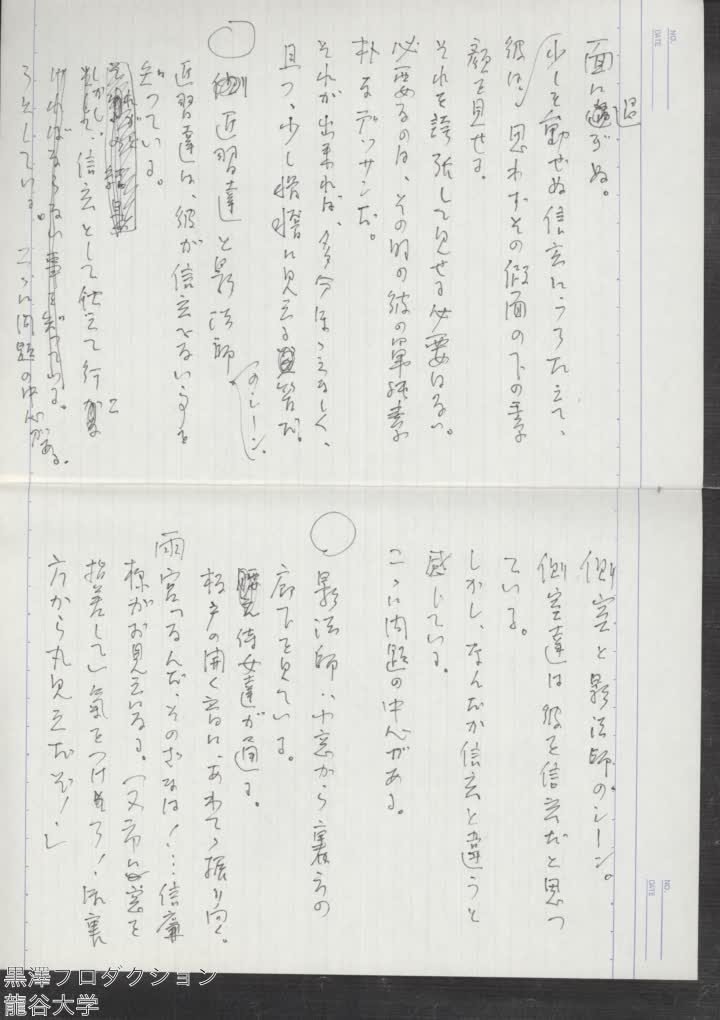 面に過ぎぬ。
少しも動ぜぬ信玄にうろたえて、
彼は、思わずその仮面の下の素
顔を見せる。
それを誇張して見せる必要はない。
必要なのは、その時の彼の単純素
朴なデッサンだ。
それが出来れば、多分ほゝえましく、
且つ、少し滑稽に見える筈だ。
○近習達と影法師
のシーン。
近習達は、彼が信玄でない事を
知っている。
しかし、信玄として仕えて行か
ければならない事を知っている。
うとしている。こゝに問題の中心がある。
側室と影法師のシーン。
側室達は彼を信玄だと思っ
ている。
しかし、なんだか信玄と違うと
感じている。
こゝに問題の中心がある。
○
影法師、小窓から裏方の
廊下を見ている。
腰元侍女達が通る。
板戸の開く音に、あわてゝ振り向く。
雨宮「なんだ、そのざまは!…信廉
様がお見えになる。(又市に)窓を
指差して」気をつけろ!あの裏
方から丸見えだぞ!」
NO.
DATE
NO.
DATE
黒澤プロダクション
龍谷大学